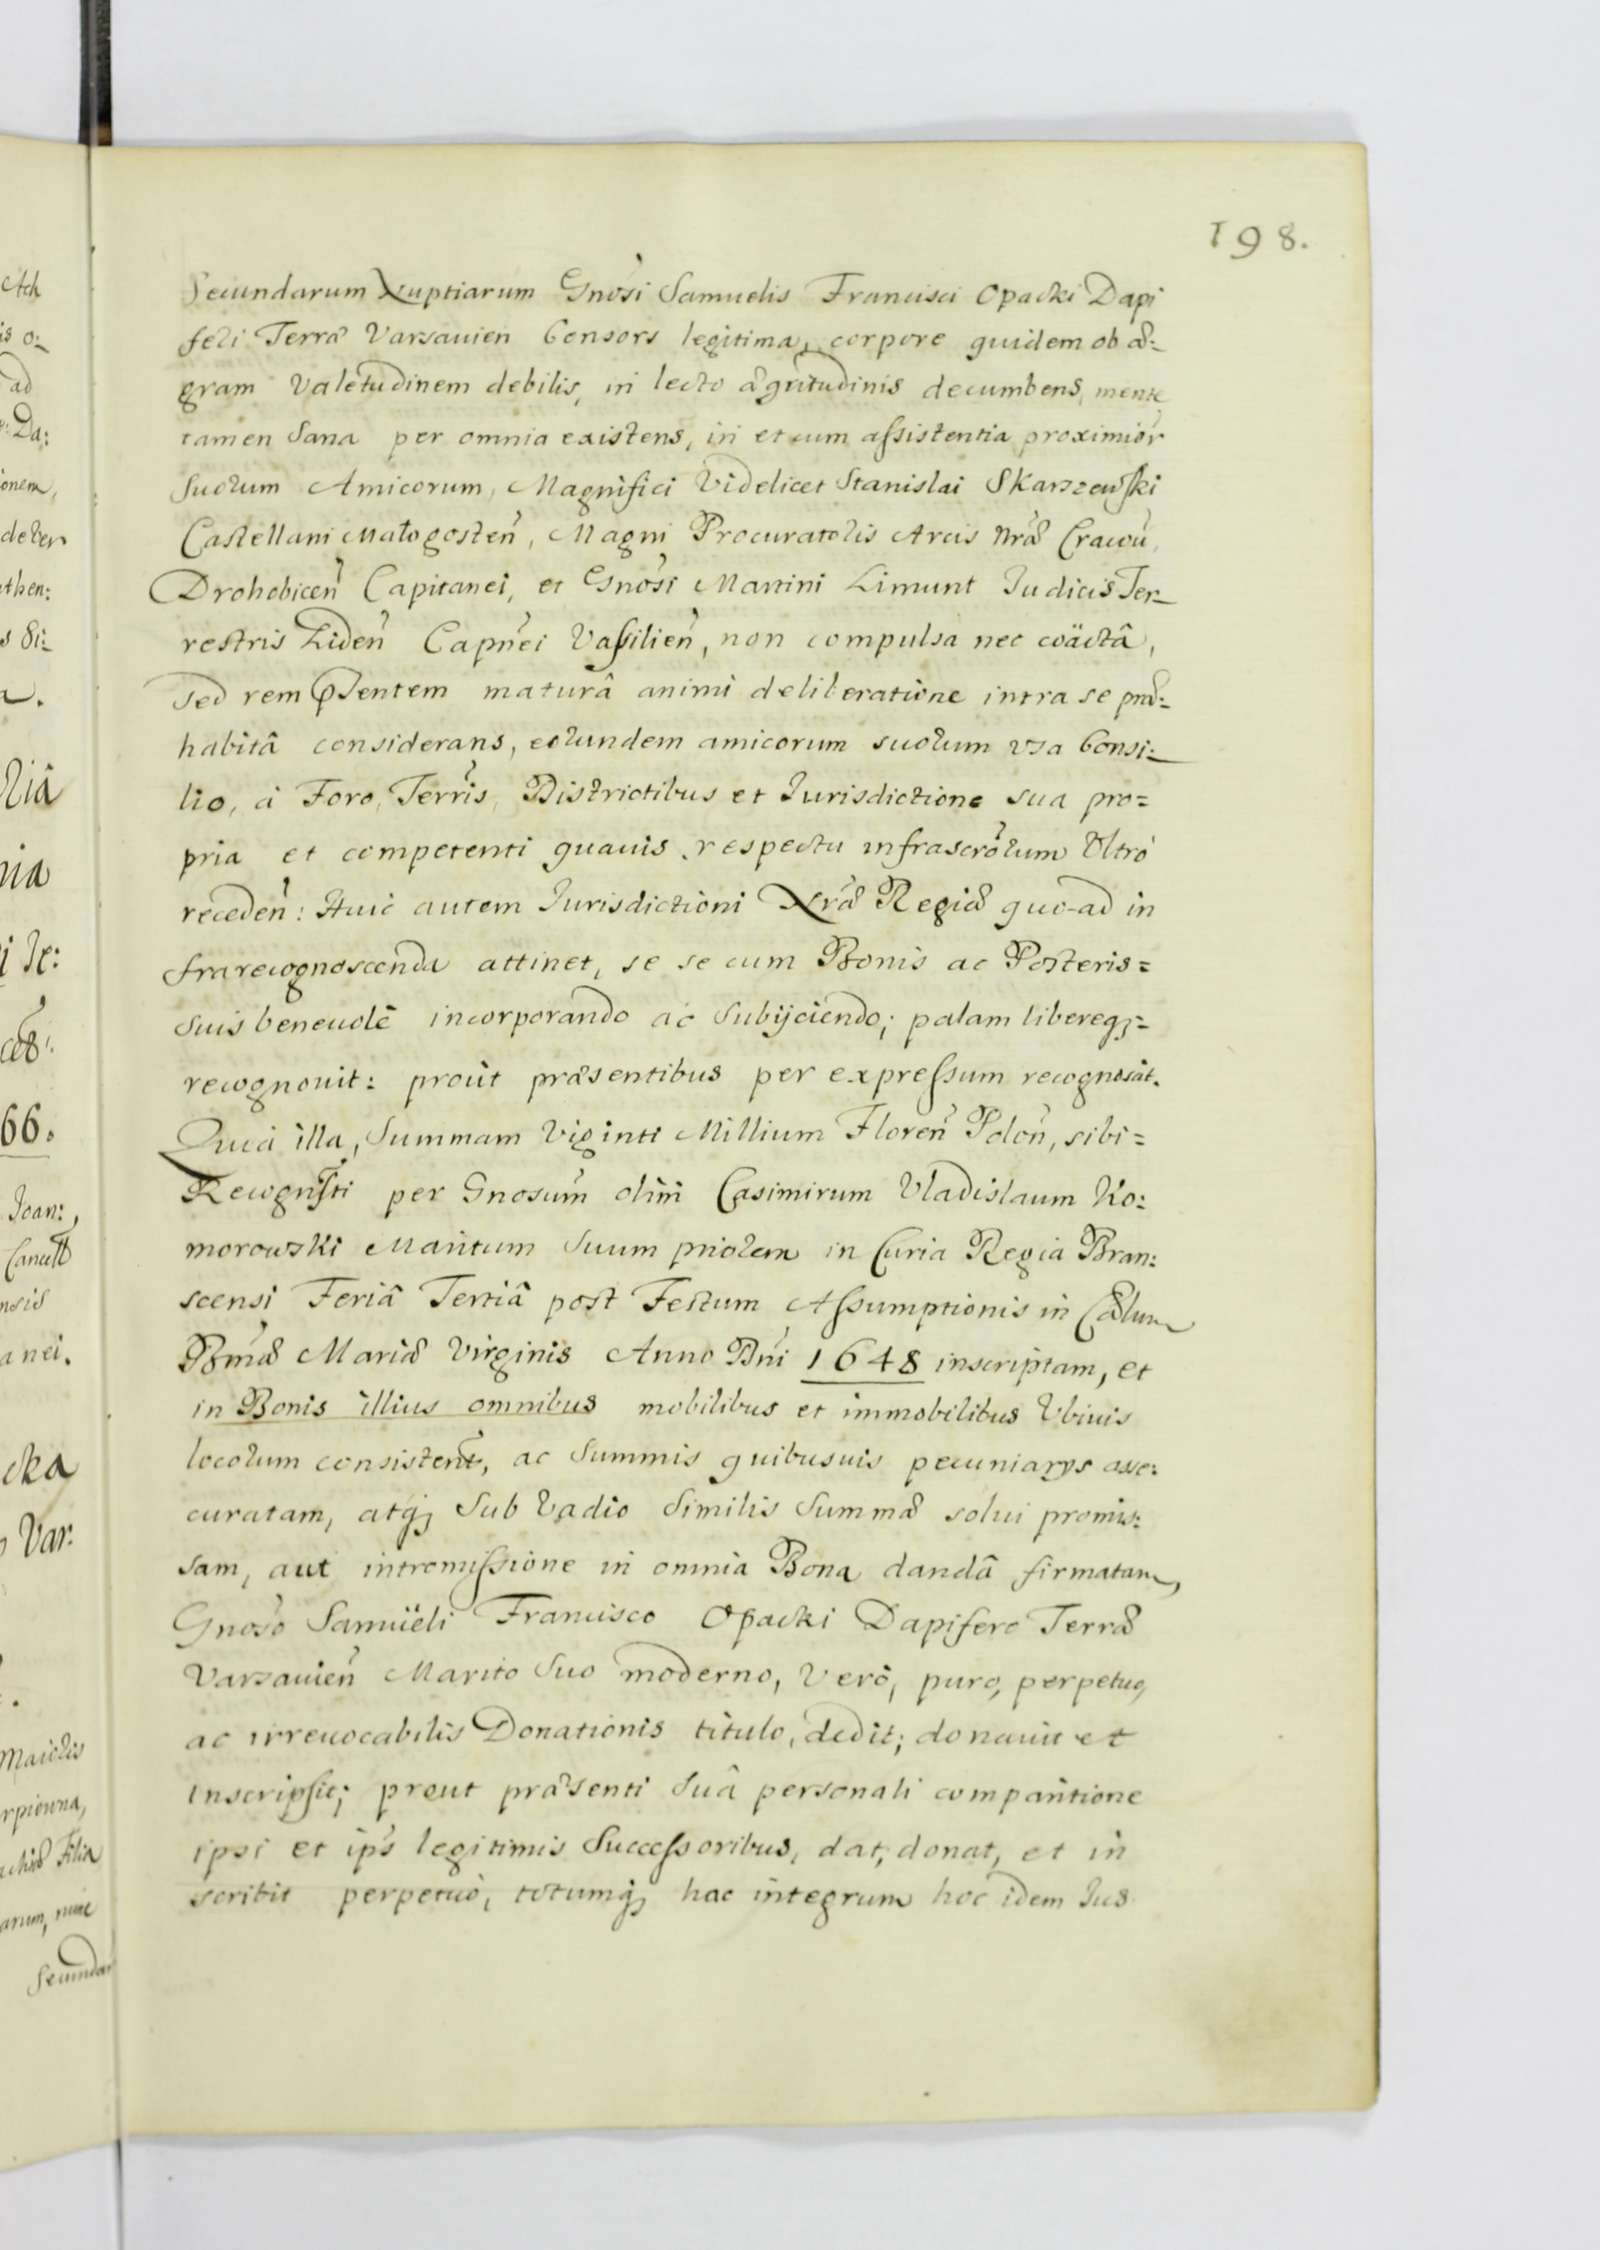 198.
Secundarum Nuptiarum Gnosi Samuelis Francisci Opacki Dapi
feri Terræ Varsavien Consors legitima, corpore quidem ob æ:
gram Valetudinem debilis, in lecto ægritudinis decumbens, mente
tamen Sana per omnia existens, in et cum assistentia proximior
Suorum Amicorum, Magnifici Videlicet Stanislai Skarszewski
Castellani Małogosten, Magni Procuratoris Arcis Nræ Cracou,
Drohobicen Capitanei, et Gnosi Martini Limunt Judicis Ter-
restris Liden Capnei Vassilien, non compulsa nec coäctâ,
Sed rem pntentem maturâ animi deliberatione intra se præ:
habitâ considerans, eorundem amicorum suorum usa Consi:
lio, à Foro, Terris, Districtibus et Jurisdictione sua pro=
pria et competenti quavis respectu infrascrorum Ultro
receden: Huic autem Jurisdictioni Nræ Regiæ quo-ad in
frarecognoscenda attinet, se se cum Bonis ac Posteris=
Suis benevolè incorporando ac Subijciendo; palam libereq3=
recognovit: proùt præsentibus per expressum recognoscit.
Quià illa, Summam Viginti Millium Floren Polon, sibi=
Recognsti per Gnosum olim Casimirum Vladislaum Ko:
morowski Maritum Suum priorem in Curia Regia Bran:
scensi Feriâ Tertiâ post Festum Assumptionis in Cælum
Bmæ Mariæ Virginis Anno Dni 1648 inscriptam, et
in Bonis illius omnibus mobilibus et immobilibus Ubivis
locorum consistent, ac Summis quibusvis pecuniarys asse:
curatam, atq3 Sub Vadio Similis Summæ solvi promis:
sam, aut intromissione in omnia Bona dandâ firmatam,
Gnoso Samüeli Francisco Opacki Dapifero Terræ
Varsavien Marito Suo moderno, Vero, puro, perpetuo,
ac irrevocabilis Donationis titulo, dedit; donavit et
inscripsit; prout præsenti Suâ personali compantione
ipsi et ips legitimis Successoribus, dat, donat, et in
scribit perpetuò, totumq3 hac integrum hoc idem Jus